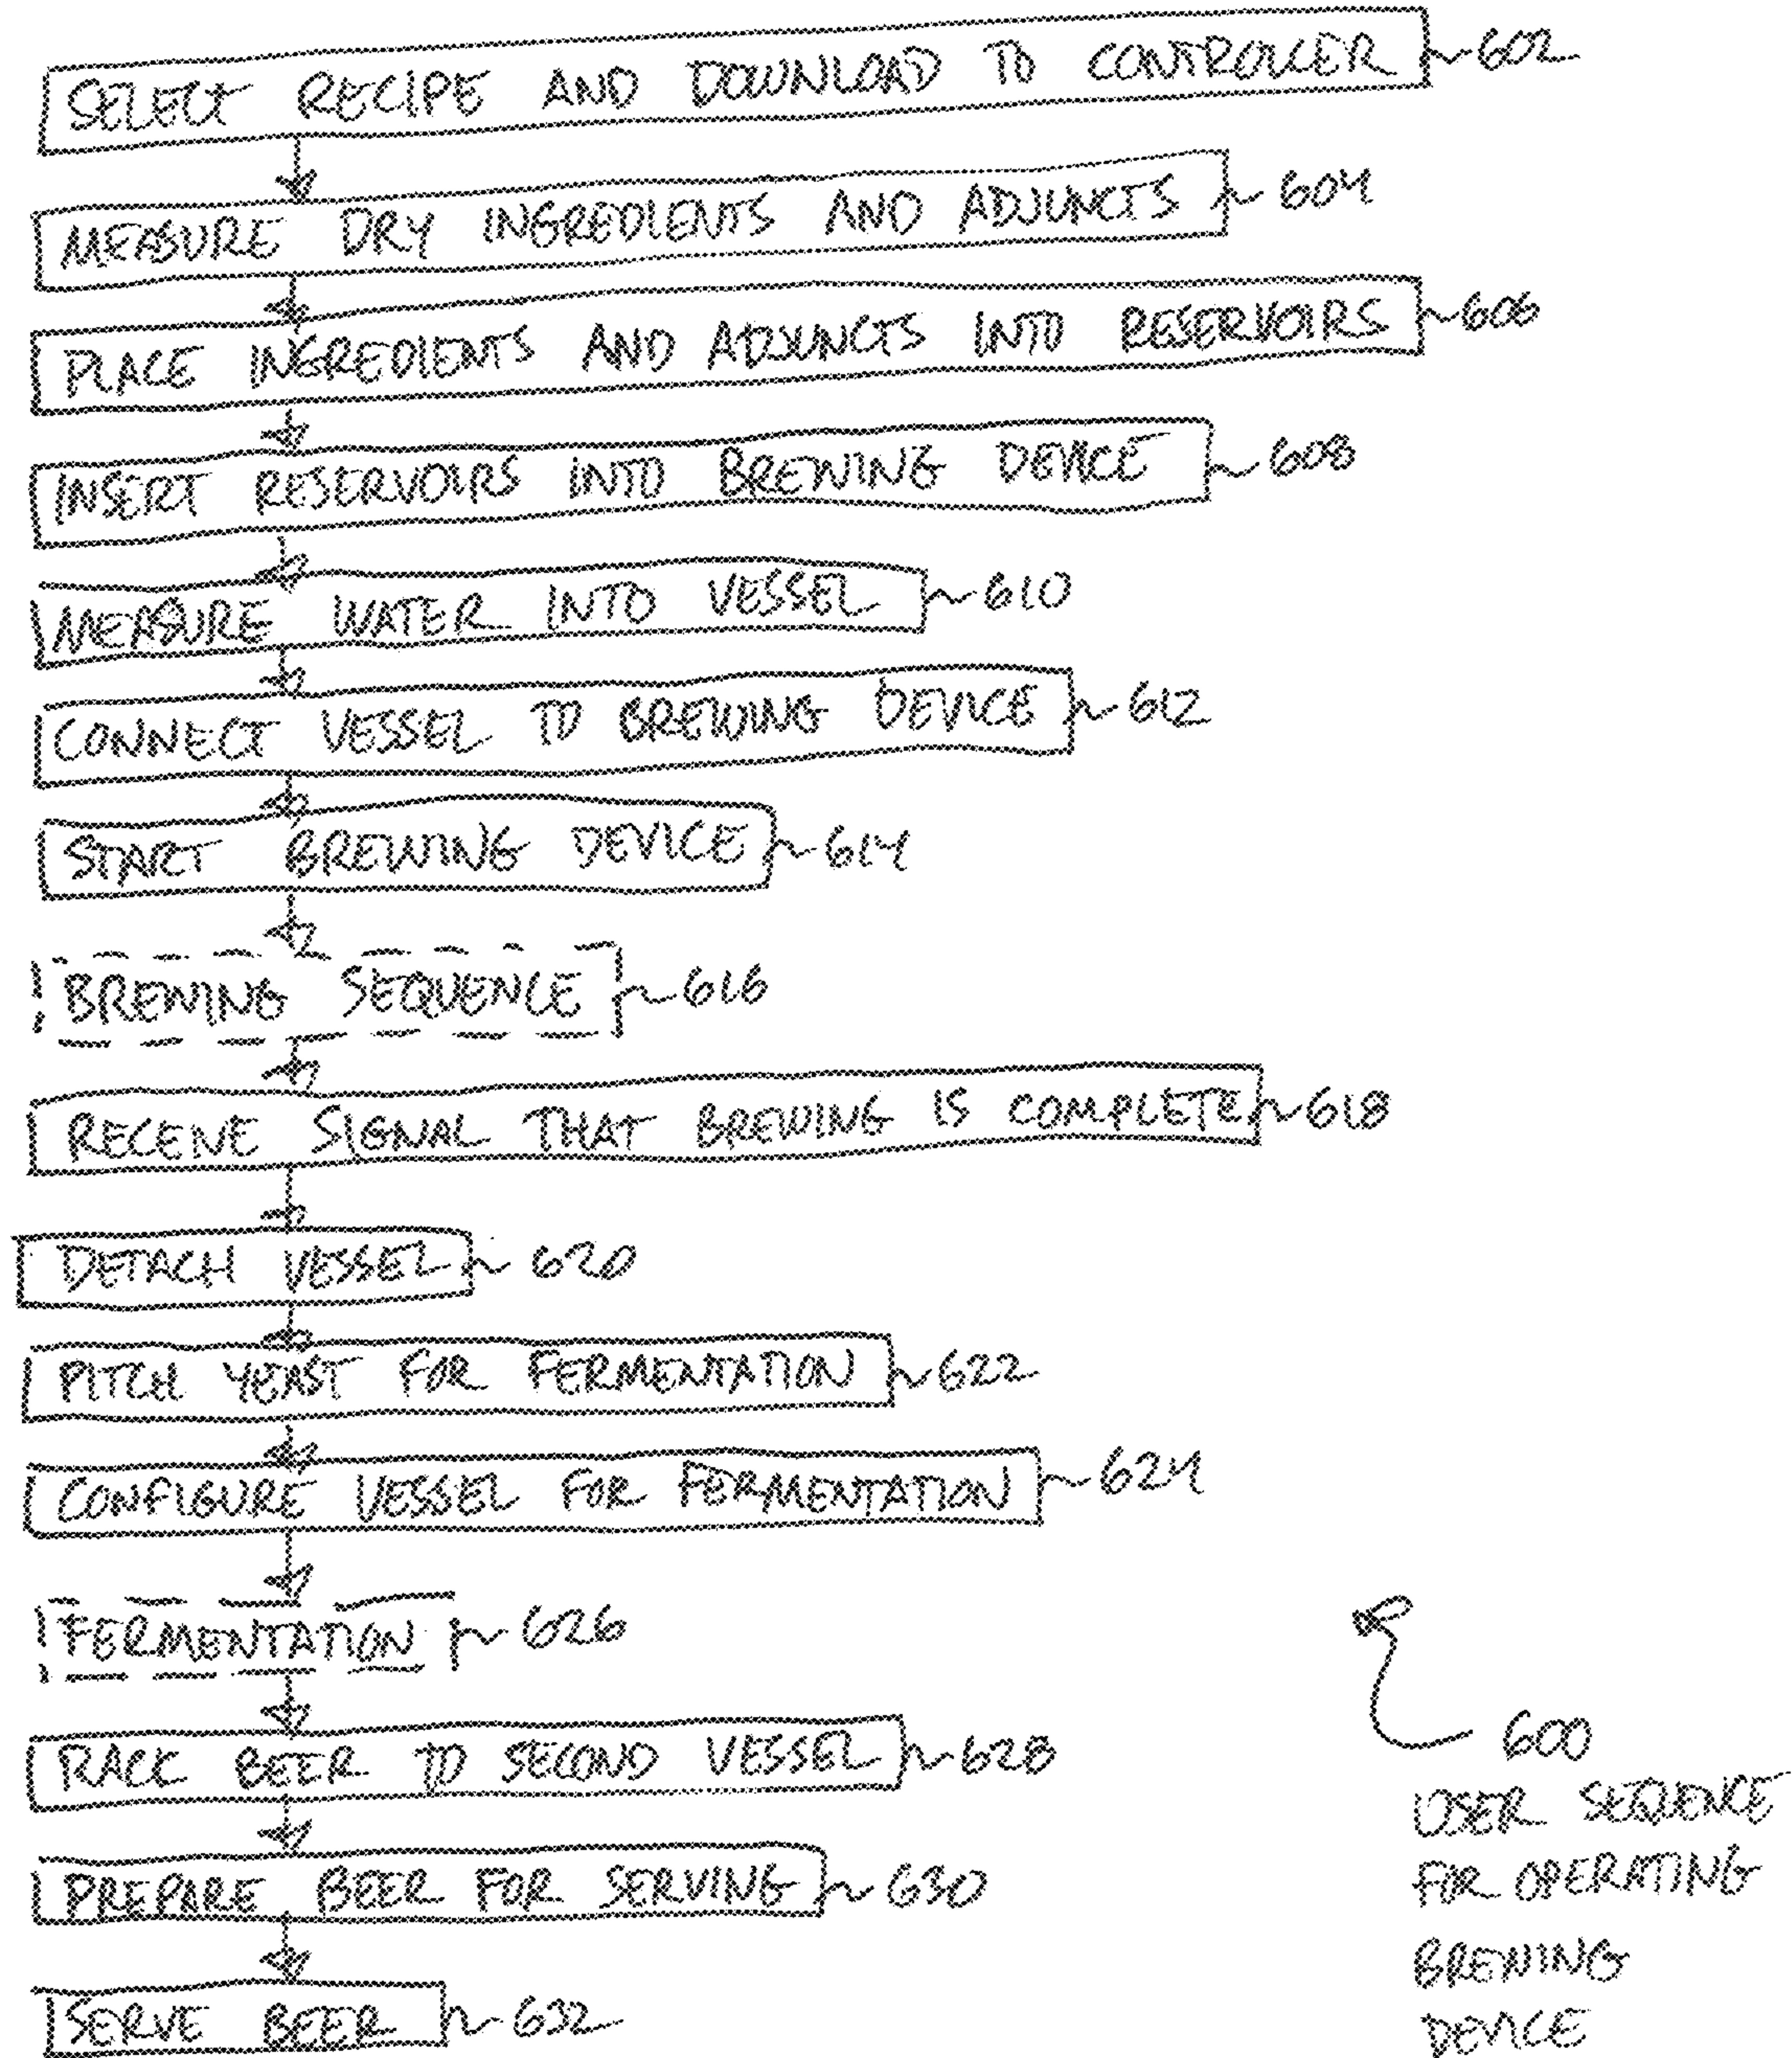 SELECT RECIPE AND DOWNLOAD TO CONTROLLER 602
MEASURE DRY INGREDIENTS AND ADJUNCTS 604
PLACE INGREDIENTS AND ADJUNCTS INTO RESERVOIRS 606
INSERT RESERVOIRS INTO BREWING DEVICE 608
MEASURE WATER INTO VESSEL 610
CONNECT VESSEL TO BREWING DEVICE 612
START BREWING DEVICE 614
BREWING SEQUENCE 616
RECEIVE SIGNAL THAT BREWING IS COMPLETE 618
DETACH VESSEL 620
PITCH YEAST FOR FERMENTATION 622
CONFIGURE VESSEL FOR FERMENTATION 624
FERMENTATION 626
RACK BEER TO SECOND VESSEL 628
PREPARE BEER FOR SERVING 630
SERVE BEER 632
600
USER SEQUENCE
FOR OPERATING
BREWING
DEVICE